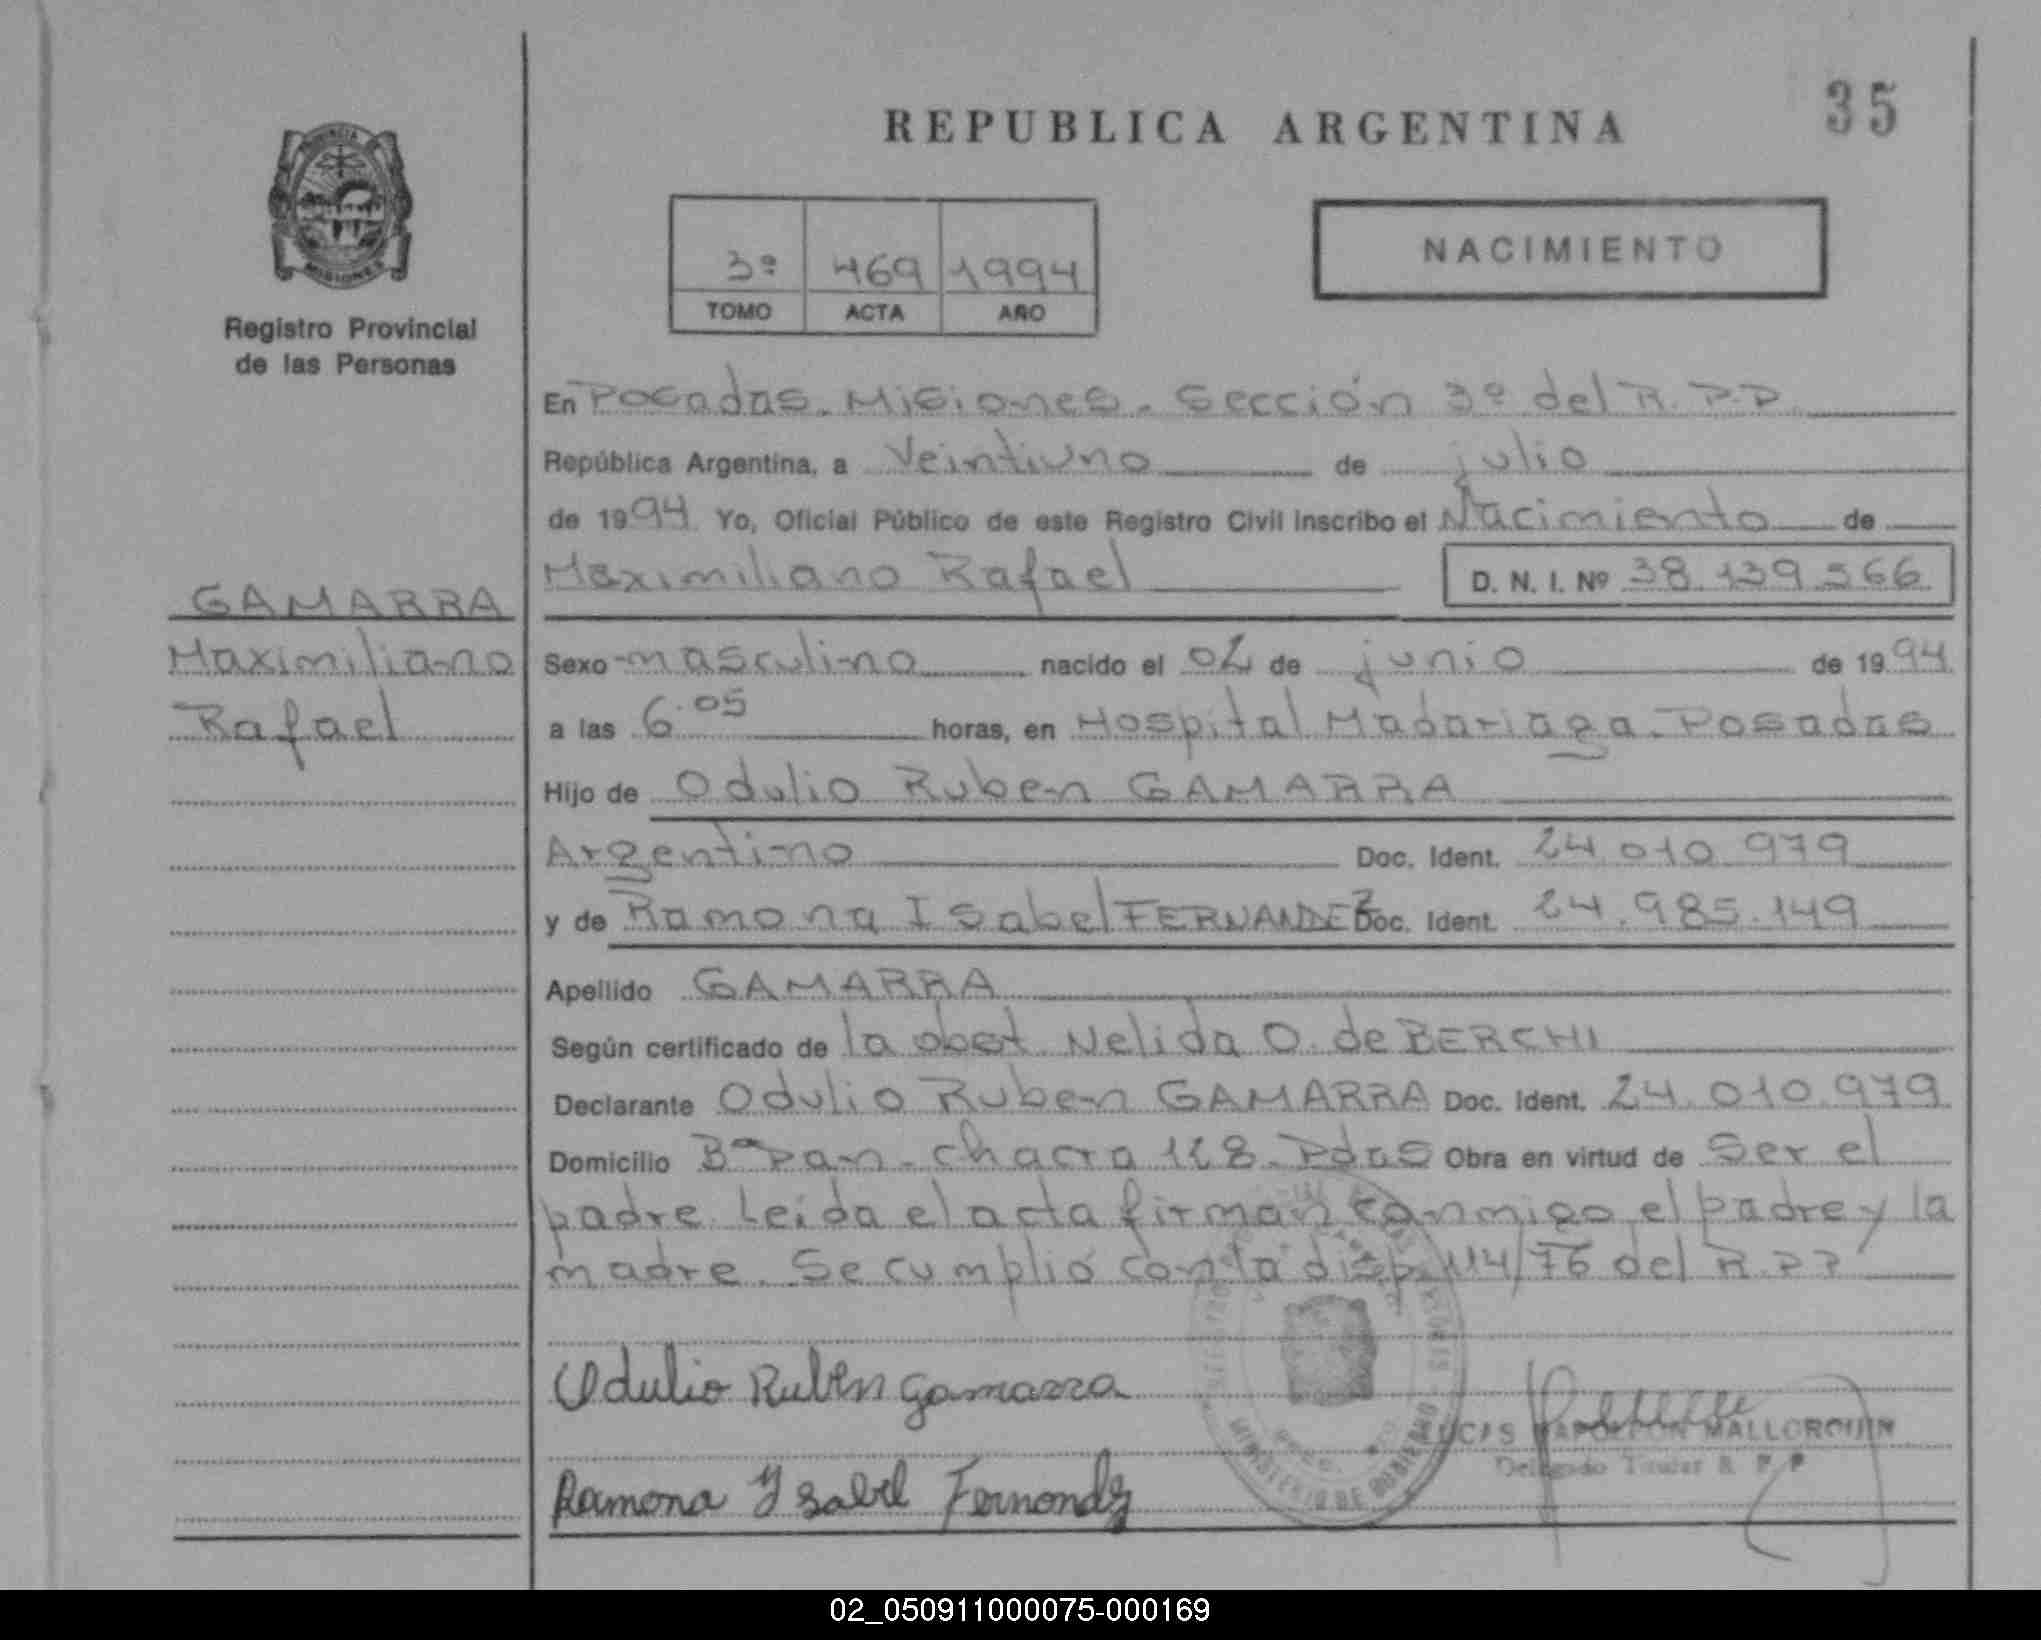 35
REPUBLICA ARGENTINA
PROVINCIA
MISIONES
Registro Provincial
de las Personas
NACIMIENTO
3º 469 1994
TOMO ACTA AÑO
GAMARRA
Maximiliano
Rafael
En Posadas. Misiones. Sección 3º del R.P.P.
República Argentina, a Veintiuno de julio
de 1994 Yo, Oficial Público de este Registro Civil inscribo el Nacimiento de
Maximiliano Rafael D. N. I. Nº 38.139.566
Sexo masculino nacido el 02 de junio de 1994
a las 6.05 horas, en Hospital Madariaga. Posadas
Hijo de Odulio Ruben GAMARRA
Argentino Doc. Ident. 24.010.979
y de Ramona Isabel FERNANDEZ Doc. Ident. 24.985.149
Apellido GAMARRA
Según certificado de la obst. Nelida O. de BERCHI
Declarante Odulio Ruben GAMARRA Doc. Ident. 24.010.979
Domicilio Bº Pan. chacra 128. Pdas Obra en virtud de Ser el
padre. Leida el acta firman conmigo el padre y la
madre. Se cumplió con la disp. 114/76 del R.P.P
Odulio Ruben Gamarra
LUCAS NAPOLEON MALLORQUIN
Delegado Titular R P P
Ramona Ysabel Fernondz
MINISTERIO DE GOBIERNO
02_050911000075-000169